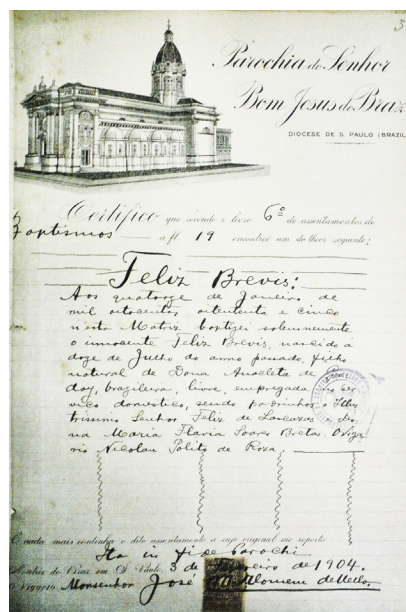 3
Parochia do Senhor
Bom Jesus do Braz
DIOCESE DE S. PAULO (BRAZIL
Certifico que sevendo o livro 6º de assentamentos de
Baptismos a fl 19 encontrei um do theor seguinte:
Feliz Brevis:
Aos quatorze de Janeiro de
mil oitocentos oitententa e cinco
n'esta Matriz baptizei solemnemente
o innocente Feliz Brevis, nascido á
doze de Julho do anno passado, filho
natural de Dona Anacleta de
brazileira, livre, empregada no ser
viço domestico, sendo padrinhos o Illus
trissimo Senhor Feliz de e Do
na Maria Flavia Soares Bretas. O Viga
rio Nicolau Polito de Roza.
E nada mais continha o dito assentamento a cujo original me reporto
Ita in fide Parochi
Matriz do Braz em S. Paulo, 3 de de 1904.
O Vigario Monsenhor José Homem de Mello